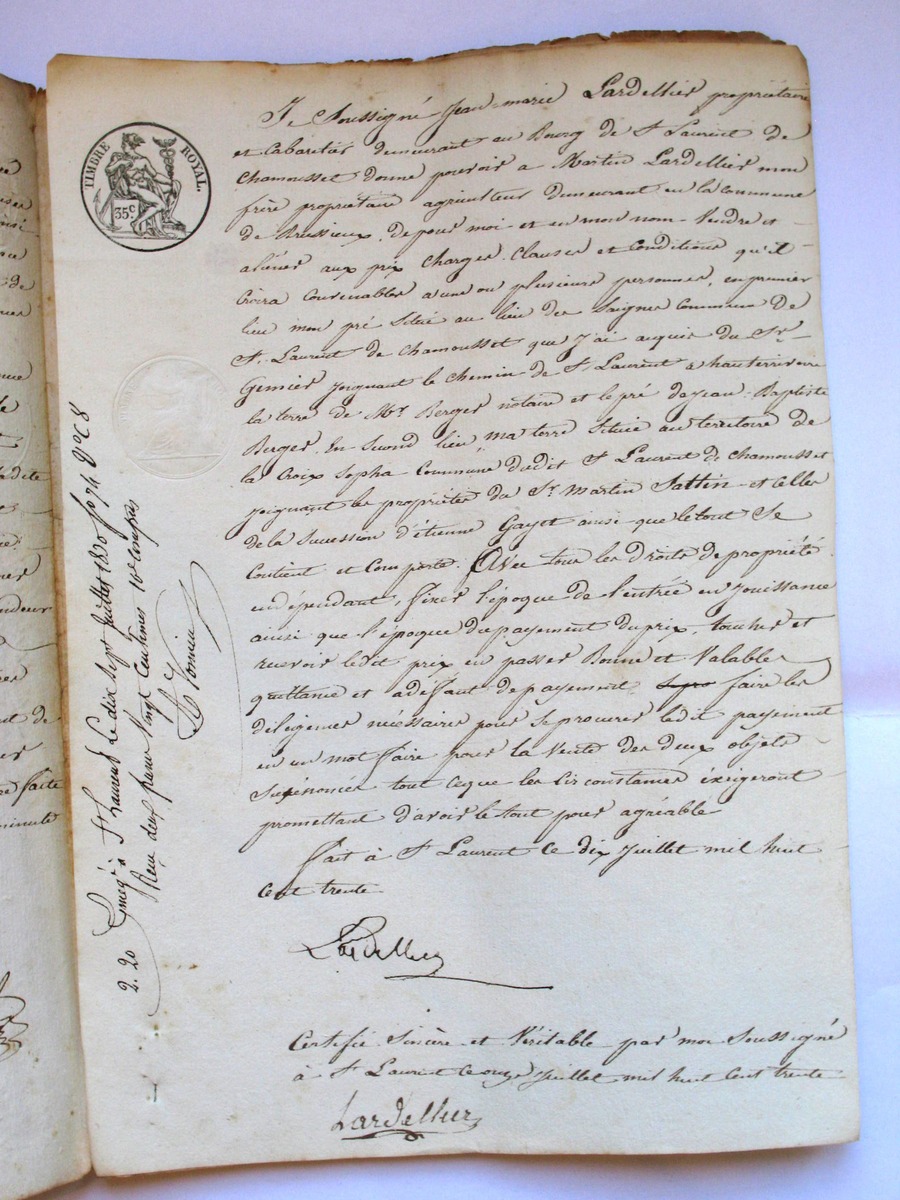 TIMBRE ROYAL.
35c
Je Soussigné Jean-marie Lardellier propriétaire
et Cabaretier demeurant au Bourg de St Laurent de
Chamousset donne pouvoir a Martin Lardellier mon
frère propriétaire agriculteur demeurant en la commune
de Brussieux, de pour moi et en mon nom Vendre et
aliéner aux prix Charges Clauses et Conditions qu'il
Croira Convenables a une ou plusieurs personnes, en premier
lieu mon pré Situé au lieu des Saignes Commune de
St Laurent de Chamousset que j'ai acquis du Sr
Gemier joignant le Chemin de St Laurent a hauterivoire
la terre de Mr Berger notaire et le pré de jean-Baptiste
Berger. En Second lieu, ma terre Située au territoire de
la Croix Sopha Commune dudit St Laurent de Chamousset
joignant les propriétés du Sr Martin Sattin et Celles
de la Succession d'étienne Gayet ainsi que le tout Se
Contient et Comporte. Avec tous les droits de propriété
en dépendant, fixer l'époque de l'entrée en jouissance
ainsi que l'époque du payement du prix, toucher et
recevoir ledit prix en passer Bonne et Valable
quittance et a défaut de payement faire les
diligences nécessaires pour Se procurer ledit payement
en un mot faire pour la Vente des deux objets
Susénoncés tout ceque les Circonstances éxigeront
promettant d'avoir le tout pour agréable
fait à St Laurent Ce dix juillet mil huit
Cent trente
Lardellier
Certifié Sincère et Véritable par moi Soussigné
à St Laurent Ce onze juillet mil huit Cent trente
Lardellier
St Laurent Le dix Sept juillet 1830 fo 74 Vo C 8
Reçu deux francs Vingt Centimes 10e Compris
2.20